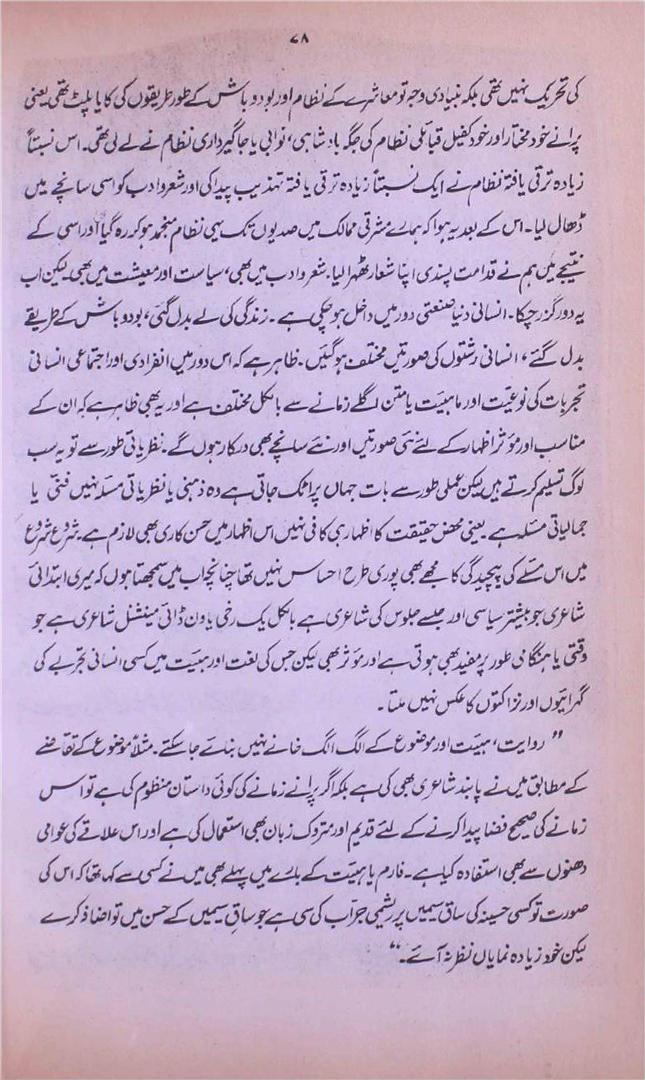 ۷۸
کی تحریک نہیں تھی بلکہ بنیادی وجہ تو معاشرے کے نظام اور بود و باش کے طور طریقوں کی کایا پلٹ تھی یعنی
پرانے خود مختار اور خود کفیل قبائلی نظام کی جگہ بادشاہی، نوابی یا جاگیرداری نظام نے لے لی تھی۔ اس نسبتاً
زیادہ ترقی یافتہ نظام نے ایک نسبتاً زیادہ ترقی یافتہ تہذیب پیدا کی اور شعر و ادب کو اسی سانچے میں
ڈھال لیا۔ اس کے بعد یہ ہوا کہ ہمارے مشرقی ممالک میں صدیوں تک یہی نظام منجمد ہو کر رہ گیا اور اسی کے
نتیجے میں ہم نے قدامت پسندی اپنا شعار ٹھہرا لیا۔ شعر و ادب میں بھی، سیاست اور معیشت میں بھی لیکن اب
یہ دور گزر چکا۔ انسانی دنیا صنعتی دور میں داخل ہو چکی ہے۔ زندگی کی لے بدل گئی، بود و باش کے طریقے
بدل گئے، انسانی رشتوں کی صورتیں مختلف ہو گئیں۔ ظاہر ہے کہ اس دور میں انفرادی اور اجتماعی انسانی
تجربات کی نوعیت اور ماہیت یا متن اگلے زمانے سے بالکل مختلف ہے اور یہ بھی ظاہر ہے کہ ان کے
مناسب اور مؤثر اظہار کے لئے نئی صورتیں اور نئے سانچے بھی درکار ہوں گے۔ نظریاتی طور سے تو یہ سب
لوگ تسلیم کرتے ہیں لیکن عملی طور سے بات جہاں پر اٹک جاتی ہے وہ ذہنی یا نظریاتی مسئلہ نہیں فنی یا
جمالیاتی مسئلہ ہے یعنی محض حقیقت کا اظہار ہی کافی نہیں اس اظہار میں حسن کاری بھی لازم ہے۔ شروع شروع
میں اس مسئلے کی پیچیدگی کا مجھے بھی پوری طرح احساس نہیں تھا چنانچہ اب میں سمجھتا ہوں کہ میری ابتدائی
شاعری جو بیشتر سیاسی اور جلسے جلوس کی شاعری ہے بالکل یک رخی یا ون ڈائی مینشنل شاعری ہے جو
وقتی یا ہنگامی طور پر مفید بھی ہوتی ہے اور مؤثر بھی لیکن جس کی لغت اور ہیئت میں کسی انسانی تجربے کی
گہرائیوں اور نزاکتوں کا عکس نہیں ملتا۔
” روایت، ہیئت اور موضوع کے الگ الگ خانے نہیں بنائے جا سکتے۔ مثلاً موضوع کے تقاضے
کے مطابق میں نے پابند شاعری بھی کی ہے بلکہ اگر پرانے زمانے کی کوئی داستان منظوم کی ہے تو اس
زمانے کی صحیح فضا پیدا کرنے کے لئے قدیم اور متروک زبان بھی استعمال کی ہے اور اس علاقے کی عوامی
دھنوں سے بھی استفادہ کیا ہے۔ فارم یا ہیئت کے بارے میں پہلے بھی میں نے کسی سے کہا تھا کہ اس کی
صورت تو کسی حسینہ کی ساق سیمیں پر ریشمی جراب کی سی ہے جو ساق سیمیں کے حسن میں تو اضافہ کرے
لیکن خود زیادہ نمایاں نظر نہ آئے۔“